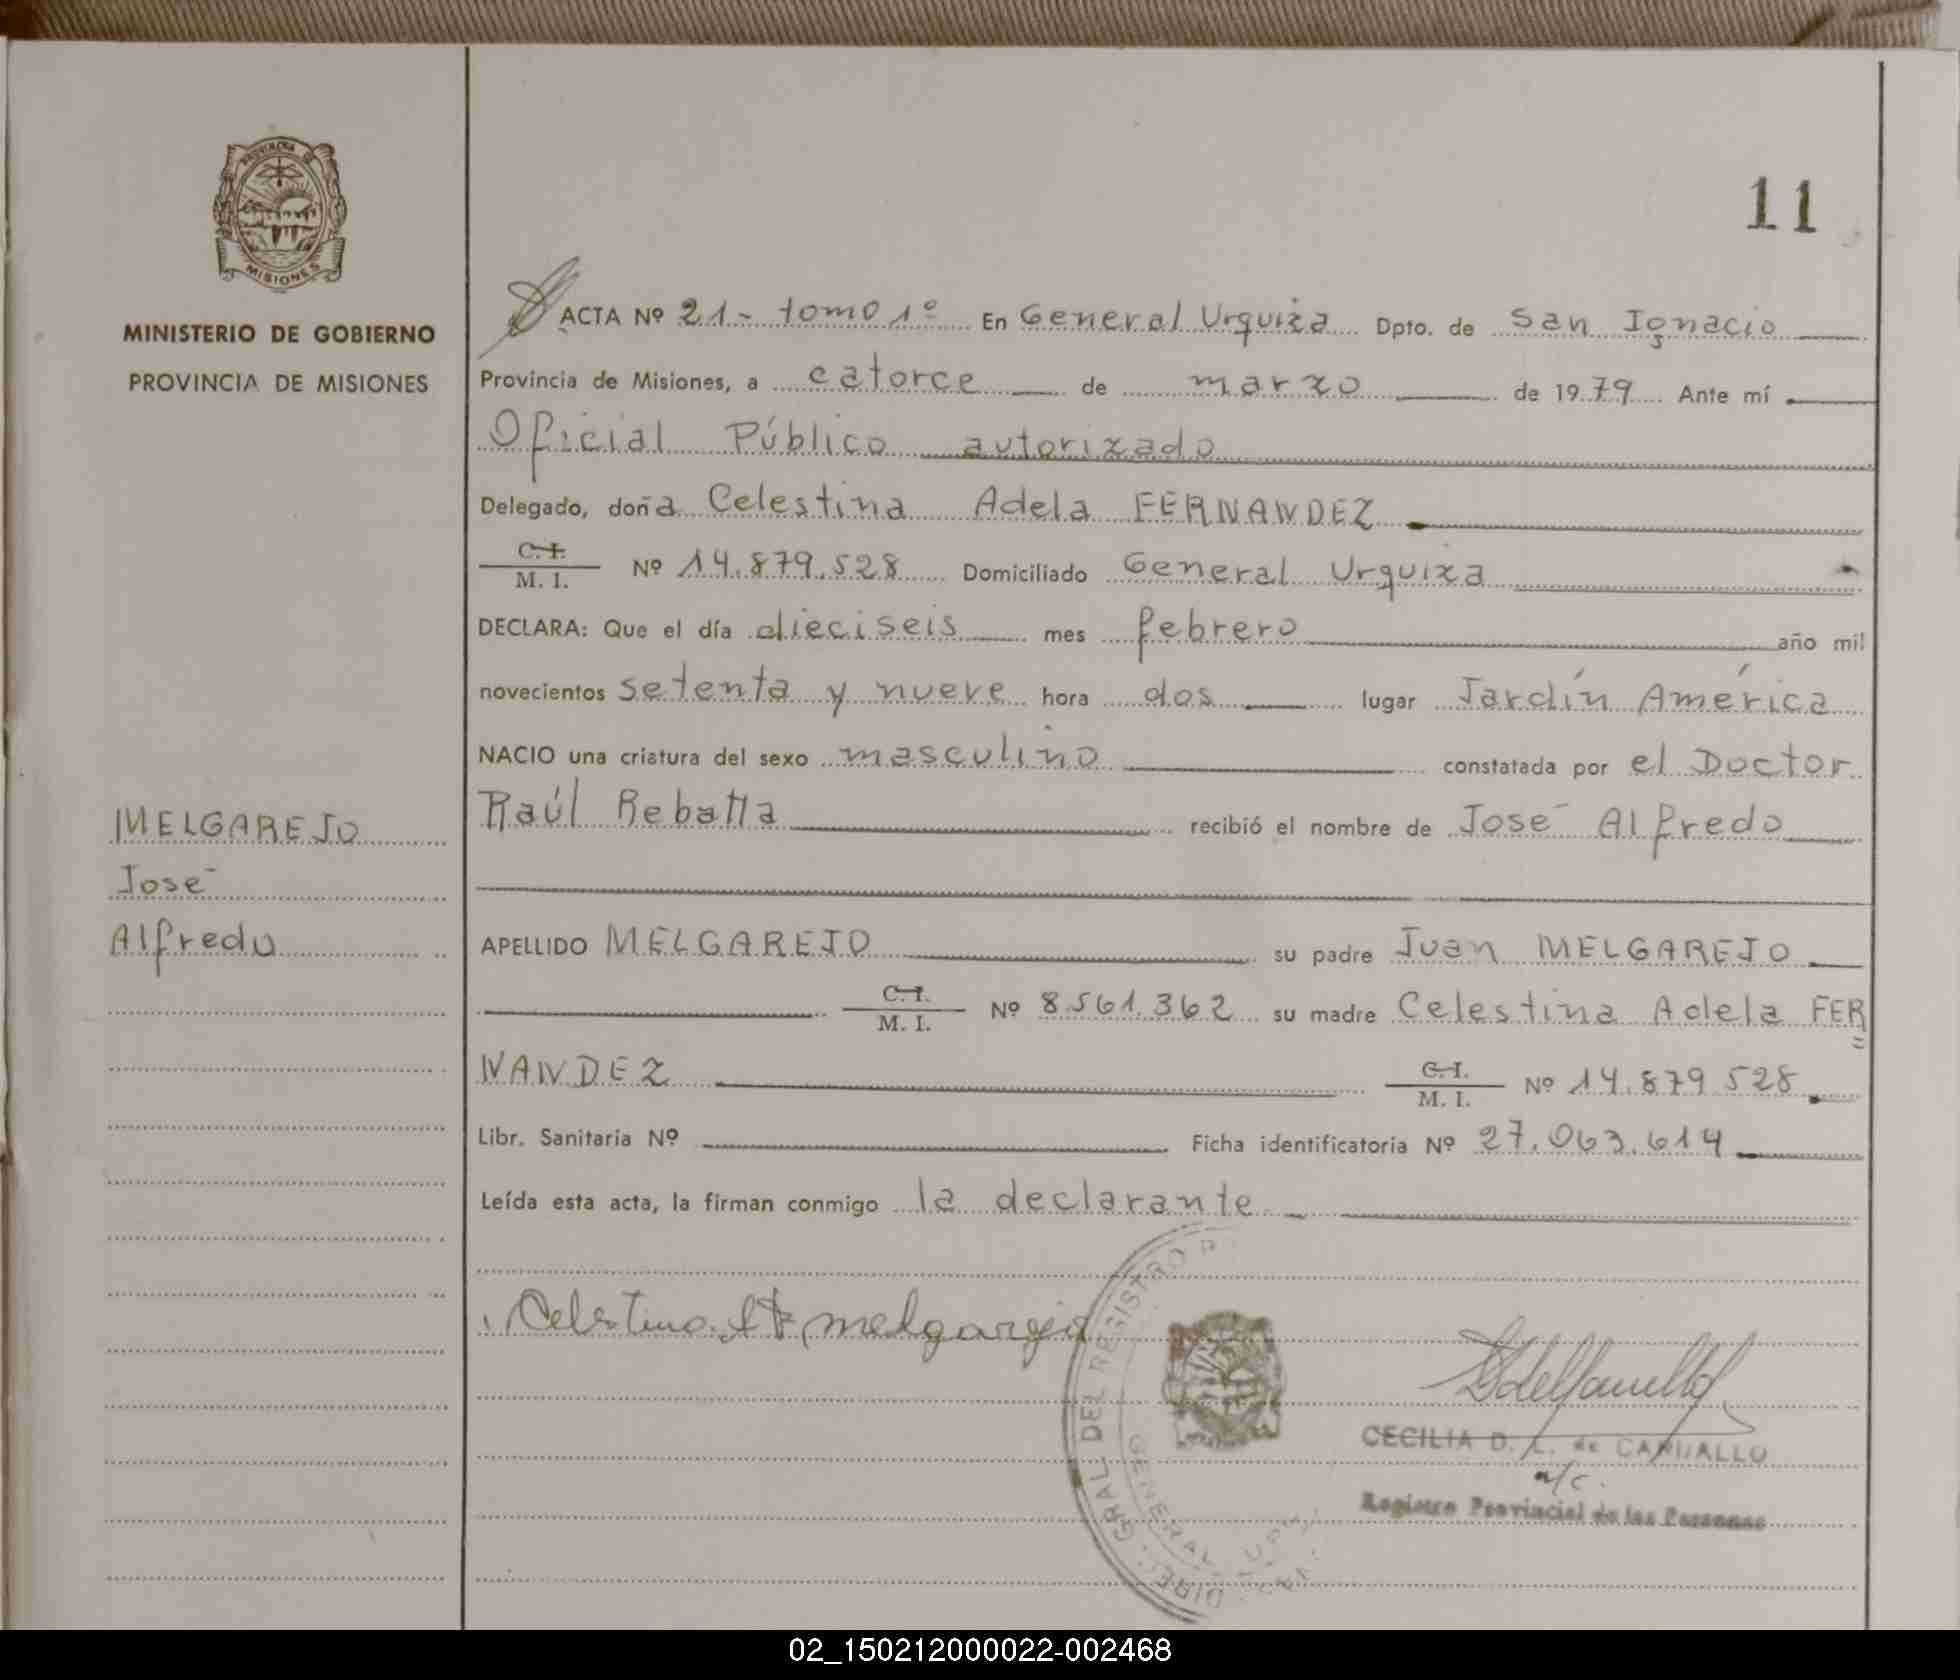 PROVINCIA DE
MISIONES
MINISTERIO DE GOBIERNO
PROVINCIA DE MISIONES
MELGAREJO
José
Alfredo
11
ACTA Nº 21- tomo 1º En General Urquiza Dpto. de San Ignacio
Provincia de Misiones, a catorce de marzo de 1979 Ante mí
Oficial Público autorizado
Delegado, doña Celestina Adela FERNANDEZ
C. I.
M. I. Nº 14.879.528 Domiciliado General Urquiza
DECLARA: Que el día dieciseis mes febrero año mil
novecientos setenta y nueve hora dos lugar Jardín América
NACIO una criatura del sexo masculino constatada por el Doctor
Raúl recibió el nombre de José Alfredo
APELLIDO MELGAREJO su padre Juan MELGAREJO
C. I.
M. I. Nº 8.561.362 su madre Celestina Adela FER=
NANDEZ C. I.
M. I. Nº 14.879.528
Libr. Sanitaria Nº Ficha identificatoria Nº 27.063.614
Leída esta acta, la firman conmigo la declarante
Celestina A F melgarejo
DIREC. GRAL DEL REGISTRO P
GENERAL
CECILIA D. L. de CARVALLO
a/c.
Registro Provincial de las Personas
02_150212000022-002468